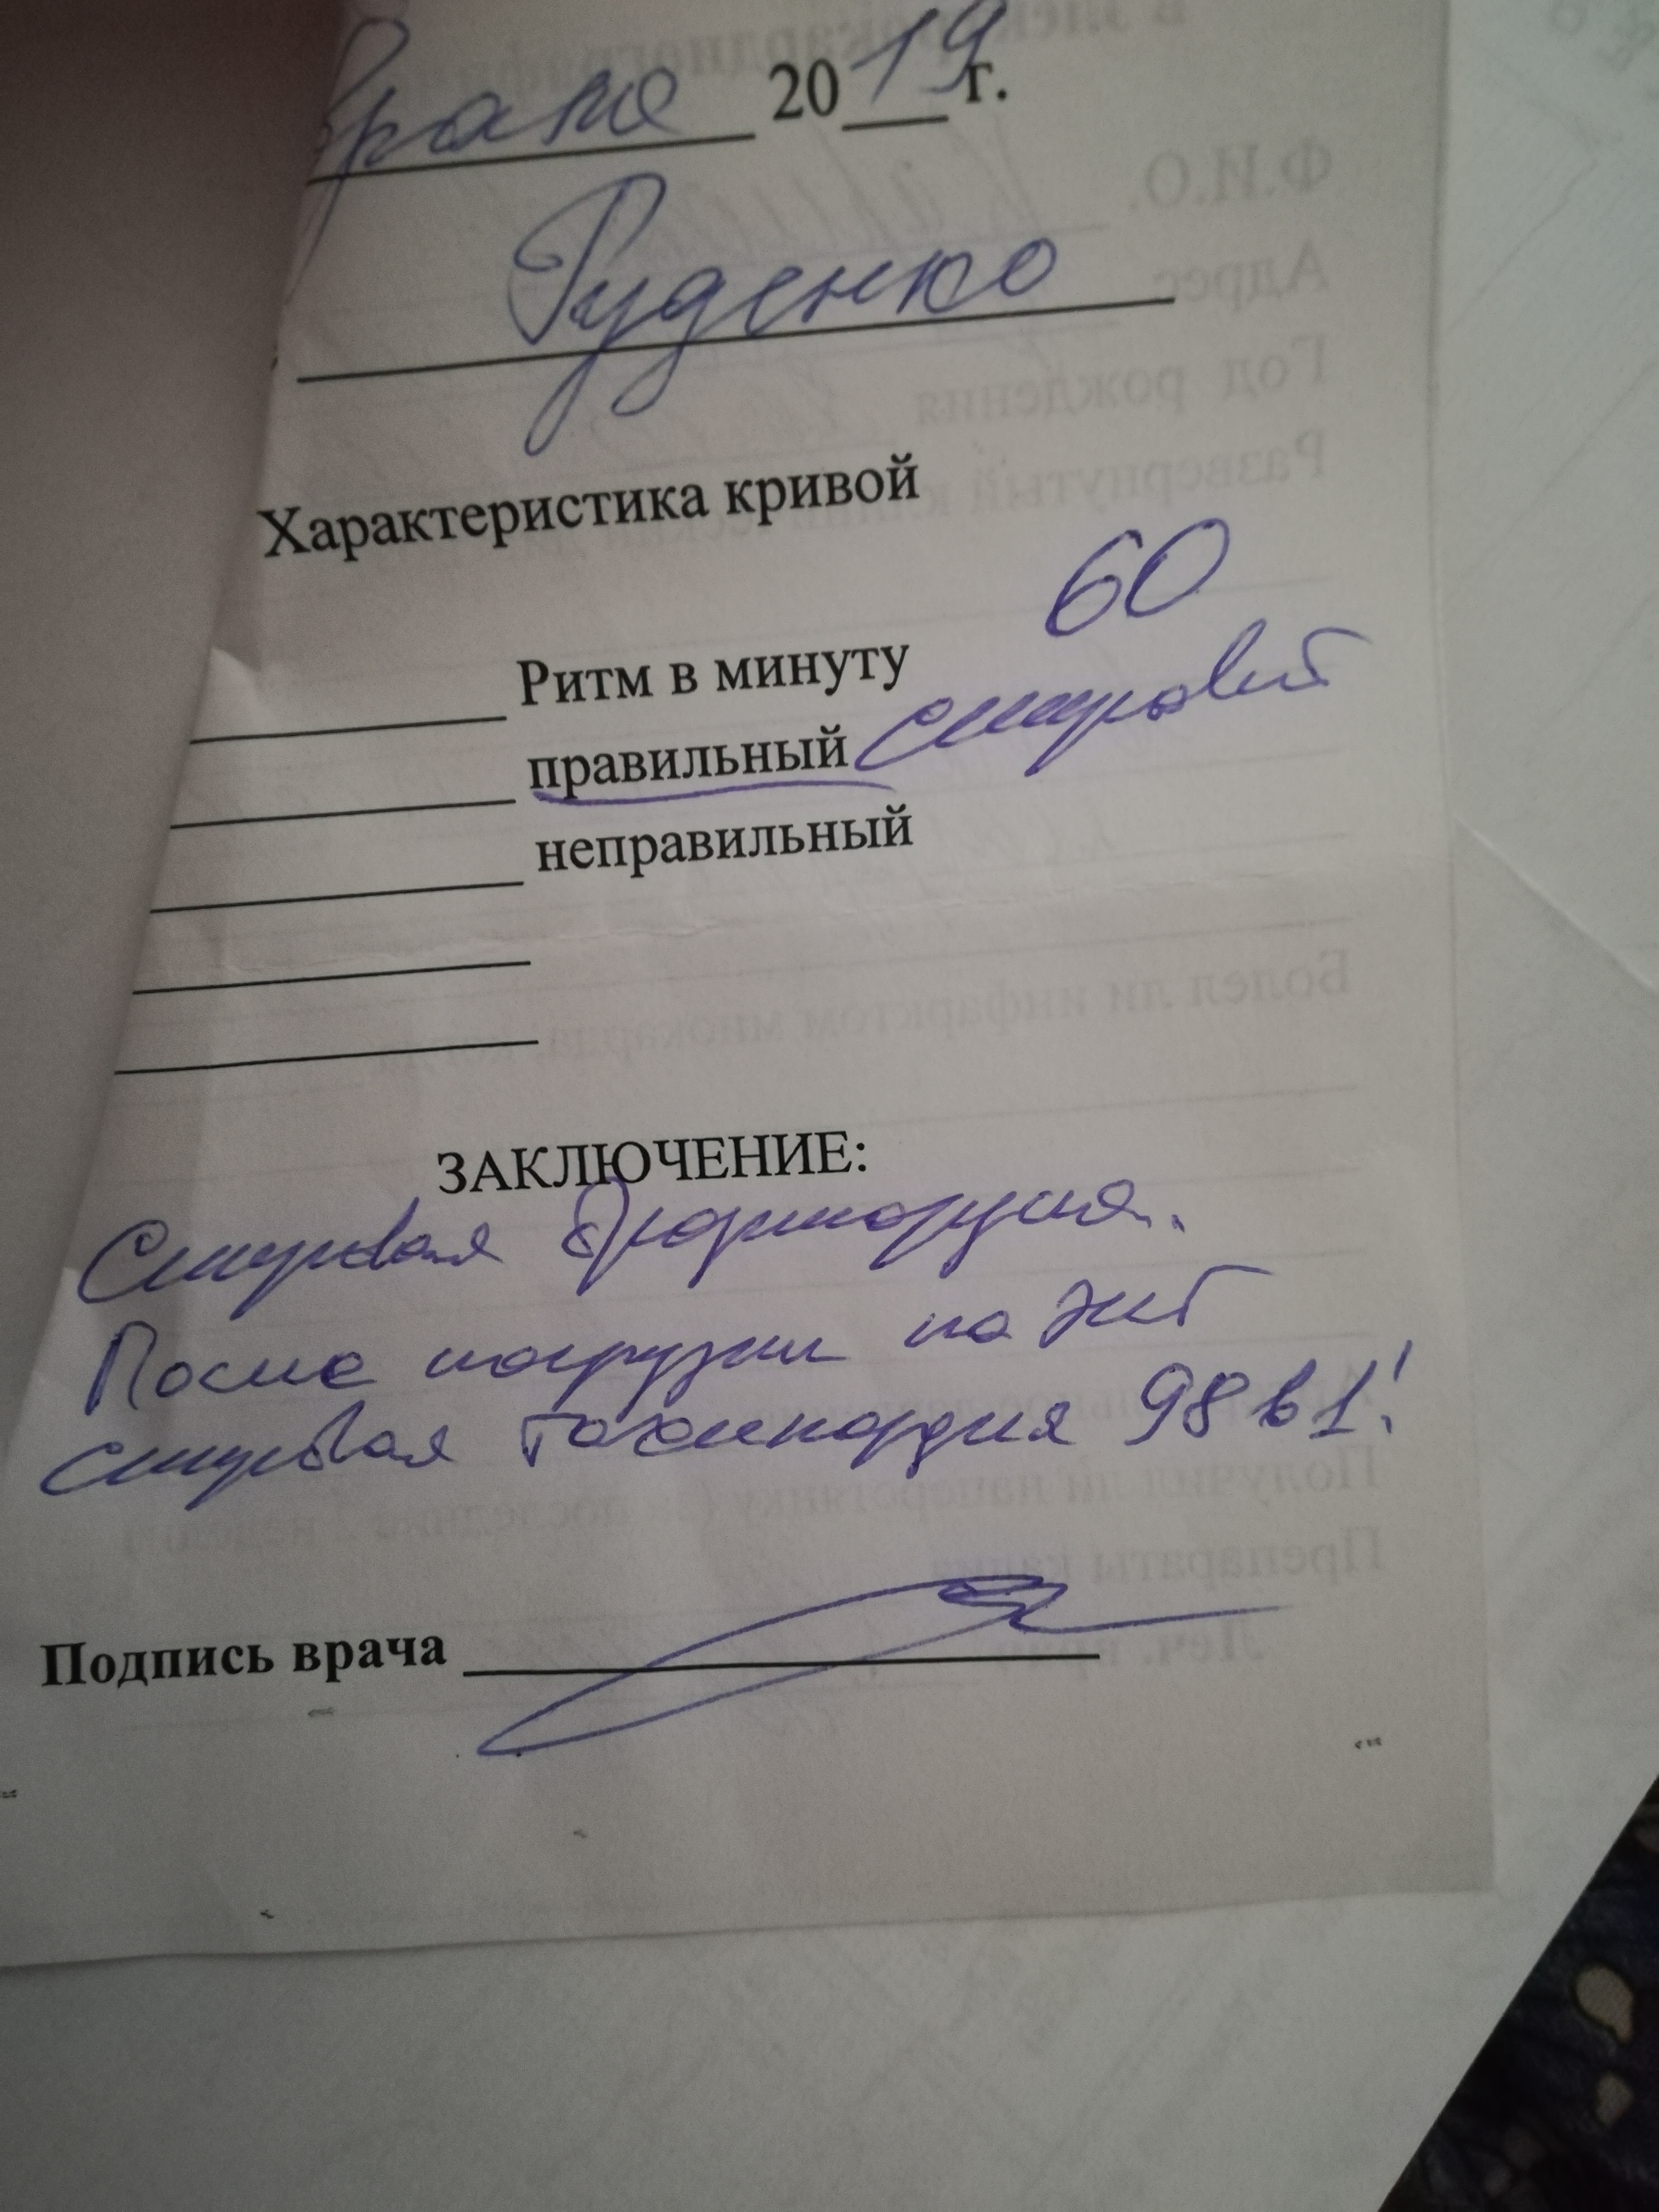 2019г.
Руденко
Характеристика кривой
Ритм в минуту 60
правильный синусовый
неправильный
ЗАКЛЮЧЕНИЕ:
Синусовая
После нагрузки на ЭКГ
синусовая тахикардия 98 в 1'.
Подпись врача